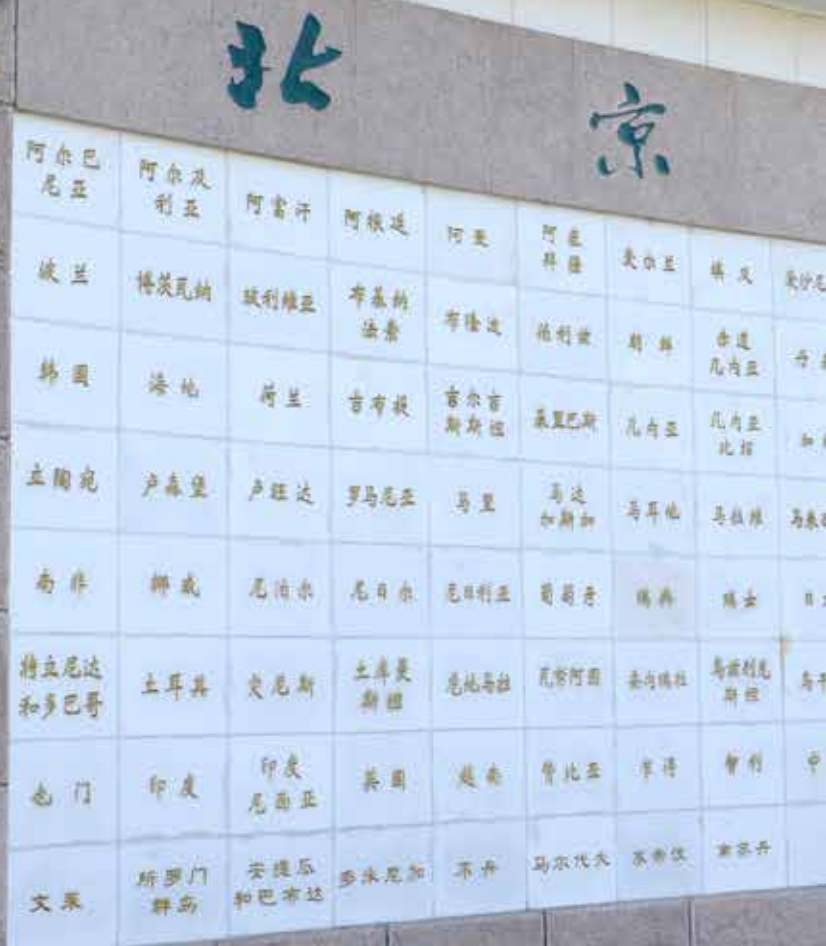 北 京
阿尔巴尼亚 阿尔及利亚 阿富汗 阿根廷 阿曼 阿塞拜疆 爱尔兰 埃及 爱沙尼
波兰 博茨瓦纳 玻利维亚 布基纳法索 布隆迪 伯利兹 朝鲜 赤道几内亚 丹
韩国 海地 荷兰 吉布提 吉尔吉斯斯坦 基里巴斯 几内亚 几内亚比绍 加
立陶宛 卢森堡 卢旺达 罗马尼亚 马里 马达加斯加 马耳他 马拉维 马来
南非 挪威 尼泊尔 尼日尔 尼日利亚 葡萄牙 瑞典 瑞士 日
特立尼达和多巴哥 土耳其 突尼斯 土库曼斯坦 危地马拉 瓦努阿图 委内瑞拉 乌兹别克斯坦 乌干
也门 印度 印度尼西亚 英国 越南 赞比亚 乍得 智利 中
文莱 所罗门群岛 安提瓜和巴布达 多米尼加 不丹 马尔代夫 东帝汶 南苏丹